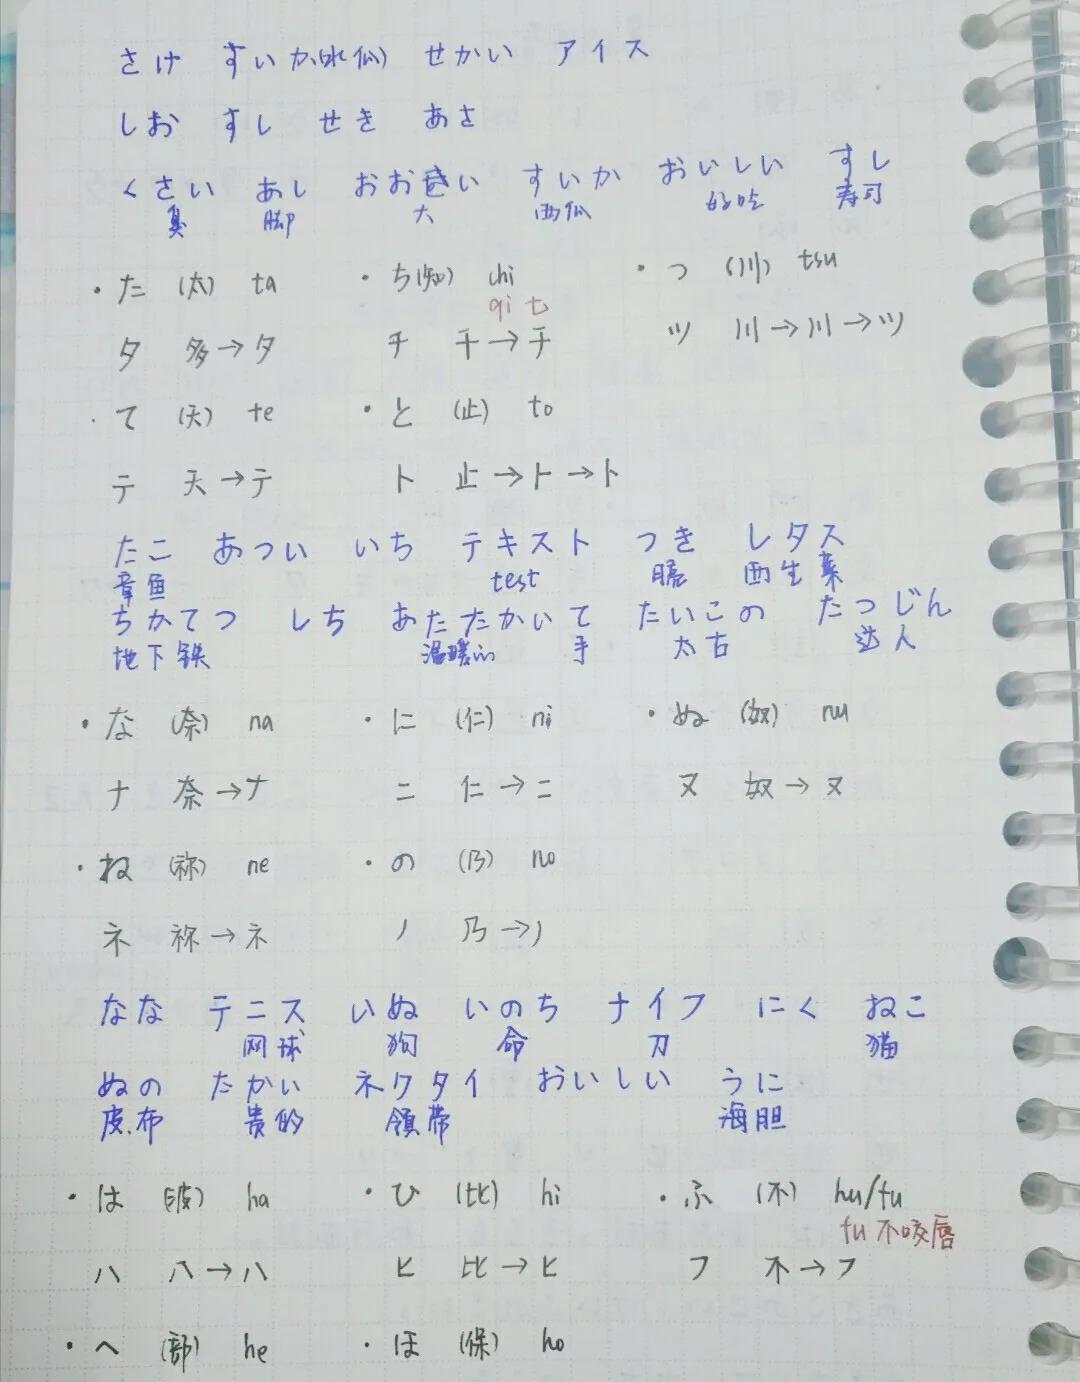 さけ すいか(水仙) せかい アイス
しお すし せき あさ
くさい あし おおきい すいか おいしい すし
臭 脚 大 西瓜 好吃 寿司
・た (太) ta ・ち(知) chi ・つ (川) tsu
qi t
タ 多→タ チ 千→千 ツ 川→川→ツ
・て (天) te ・と (止) to
テ 天→テ ト 止→ト→ト
たこ あつい いち テキスト つき レタス
章鱼 test 西生菜
ちかてつ しち あたたかい て たいこの たつじん
地下铁 温暖的 手 太古 达人
・な (奈) na ・に (仁) ni ・ぬ (奴) nu
ナ 奈→ナ ニ 仁→ニ ヌ 奴→ヌ
・ね (祢) ne ・の (乃) no
ネ 祢→ネ ノ 乃→ノ
なな テニス いぬ いのち ナイフ にく ねこ
网球 狗 命 刀 猫
ぬの たかい ネクタイ おいしい うに
皮布 贵的 领带 海胆
・は (波) ha ・ひ (比) hi ・ふ (不) hu/fu
fu 不咬唇
ハ 八→ハ ヒ 比→ヒ フ 不→フ
・へ (部) he ・ほ (保) ho